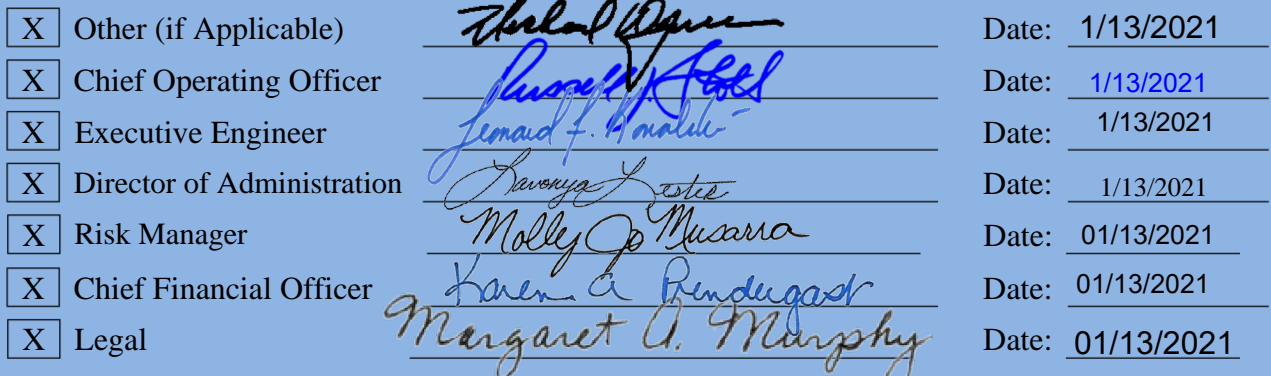 X Other (if Applicable) Date: 1/13/2021
X Chief Operating Officer Russell J. Stoll Date: 1/13/2021
X Executive Engineer Leonard F. Kowalski Date: 1/13/2021
X Director of Administration Lavonya Lester Date: 1/13/2021
X Risk Manager Molly Jo Musarra Date: 01/13/2021
X Chief Financial Officer Karen A Prendergast Date: 01/13/2021
X Legal Margaret A. Murphy Date: 01/13/2021